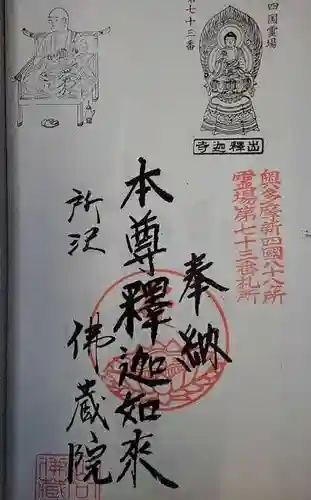 四国霊場
第七十三番
出釋迦寺
奥多摩新四國八十八所
霊場第七十三番札所
奉納
本尊釋迦如來
所沢 佛蔵院